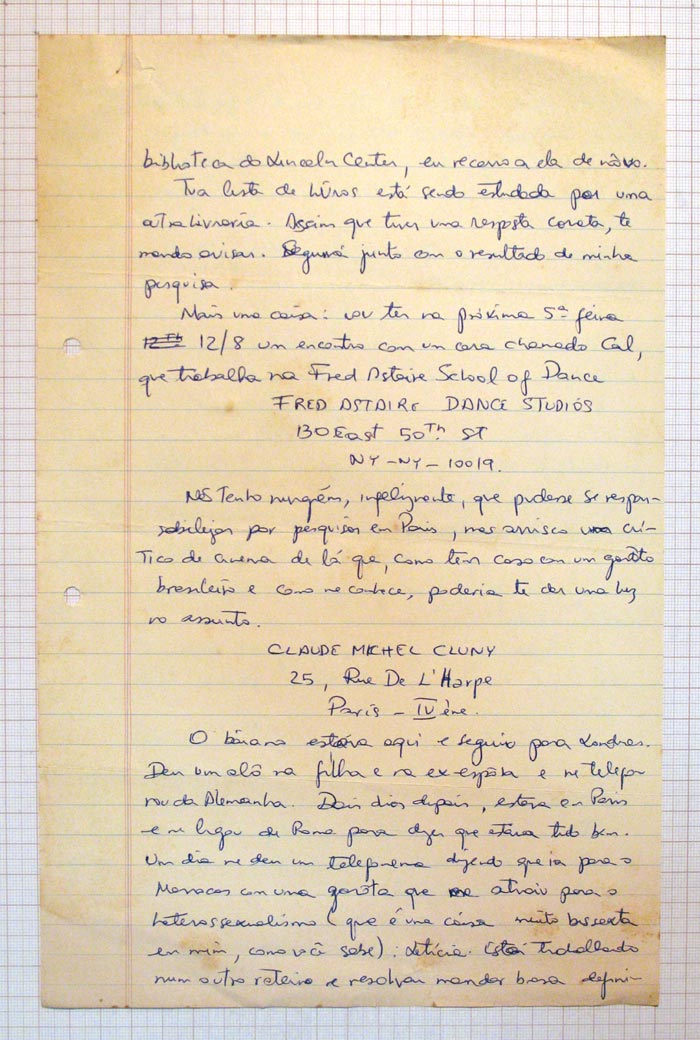 biblioteca do Lincoln Center, eu recorro a ela de nôvo.
Tua lista de livros está sendo estudada por uma
outra livraria. Assim que tiver uma resposta correta, te
mando avisar. Seguirá junto com o resultado de minha
pesquisa.
Mais uma coisa: vou ter na próxima 5ª feira
12/8 um encontro com um cara chamado Cal,
que trabalha na Fred Astaire School of Dance
FRED ASTAIRE DANCE STUDIOS
130 East 50Th ST
NY-NY-10019.
Ñ Tenho ninguém, infelizmente, que pudesse se respon-
sabilizar por pesquisas em Paris, mas arrisco um crí-
tico de cinema de lá que, como tem caso com um garôto
brasileiro e como me conhece, poderia te dar uma luz
no assunto.
CLAUDE MICHEL CLUNY
25, Rue De L'Harpe
Paris - IV ène.
O estava aqui e seguiu para Londres.
Deu um alô na filha e na ex-espôsa e me telefo
nou da Alemanha. Dois dias depois, estava em Paris
e me ligou de Roma para dizer que estava tudo bem.
Um dia me deu um telefonema dizendo que ia para o
Marrocos com uma garôta que o atraiu para o
heterossexualismo (que é uma coisa muito bissexta
em mim, como você sabe): Letícia. Está trabalhando
num outro roteiro e resolveu mandar brasa defini-